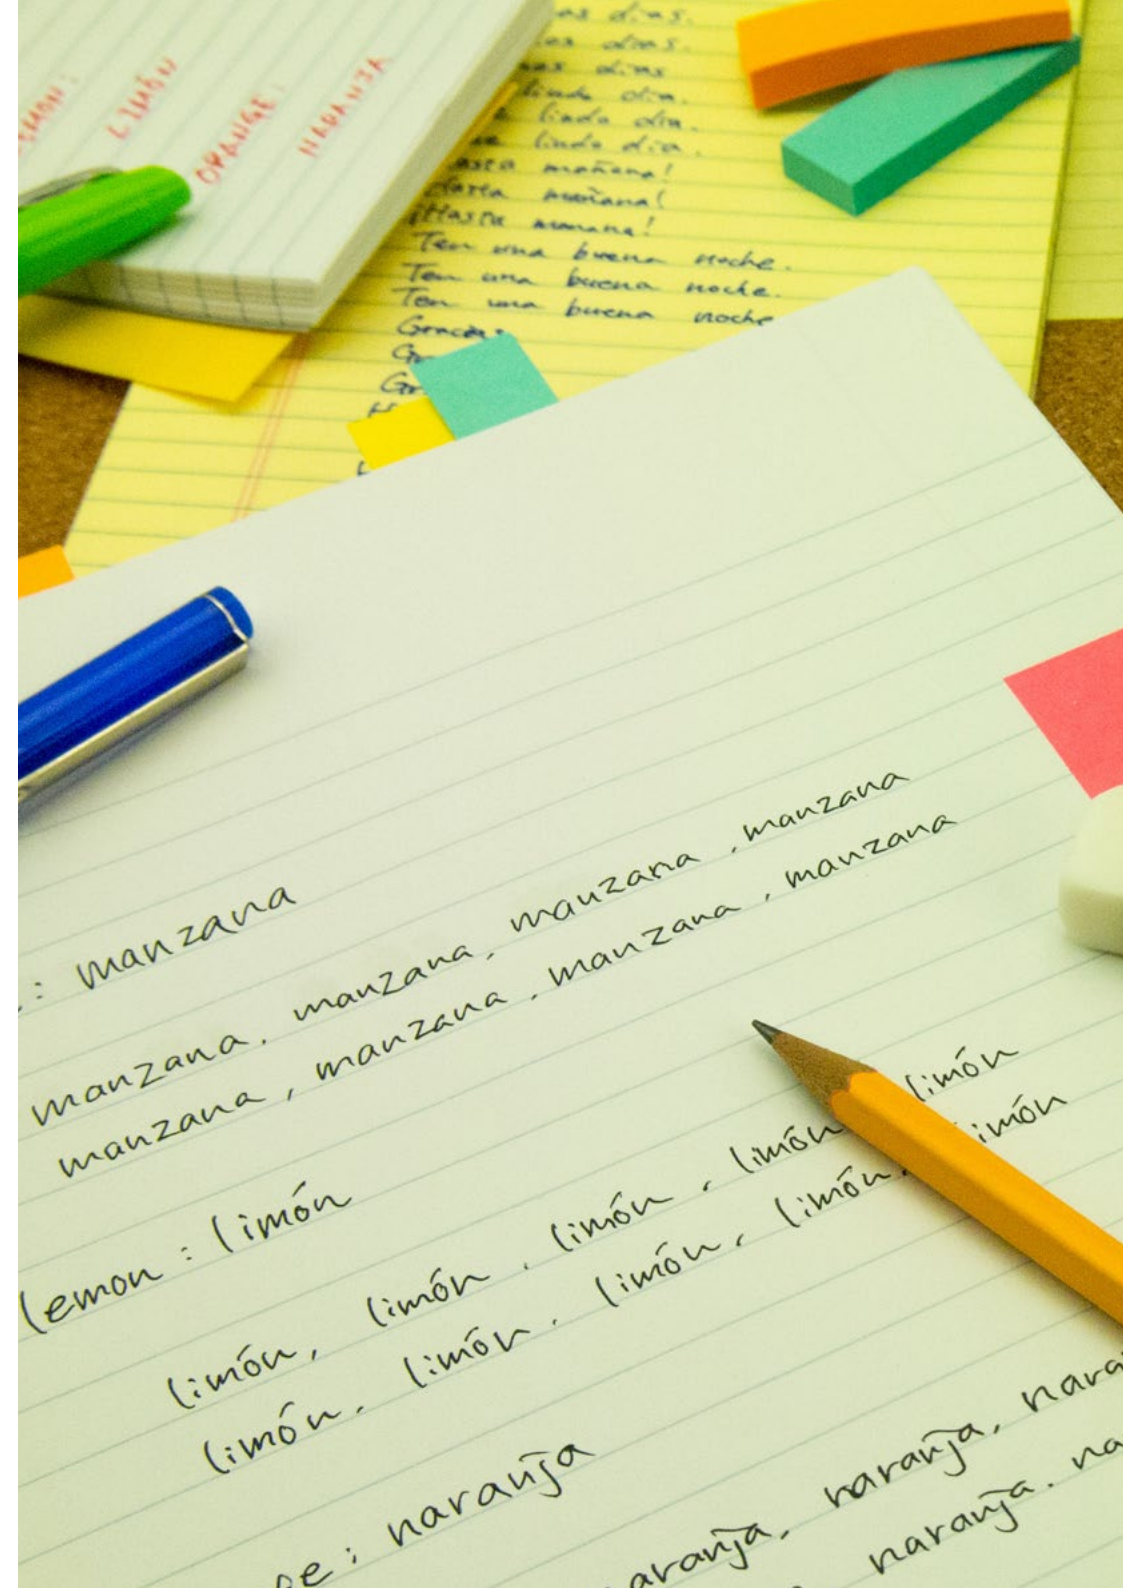 LIMÓN
ORANGE:
NARANJA
días.
días.
días
lindo día.
lindo día.
lindo día.
mañana!
Hasta mañana!
¡Hasta manana!
Ten una buena noche.
Ten una buena noche.
Ten una buena noche
Gracias
: manzana
manzana, manzana, manzana, manzana
manzana, manzana, manzana, manzana
lemon : limón
limón, limón, limón, limón limón
limón, limón, limón, limón, limón
: naranja
naranja, naranja,
naranja.